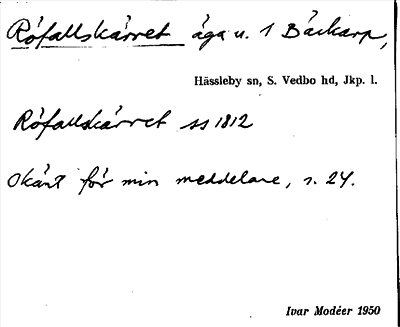 Röfallskärret äga u. 1 Bäckarp,
Hässleby sn, S. Vedbo hd, Jkp. l.
Röfallskärret ss 1812
Okänt för min meddelare, s. 24.
Ivar Modéer 1950